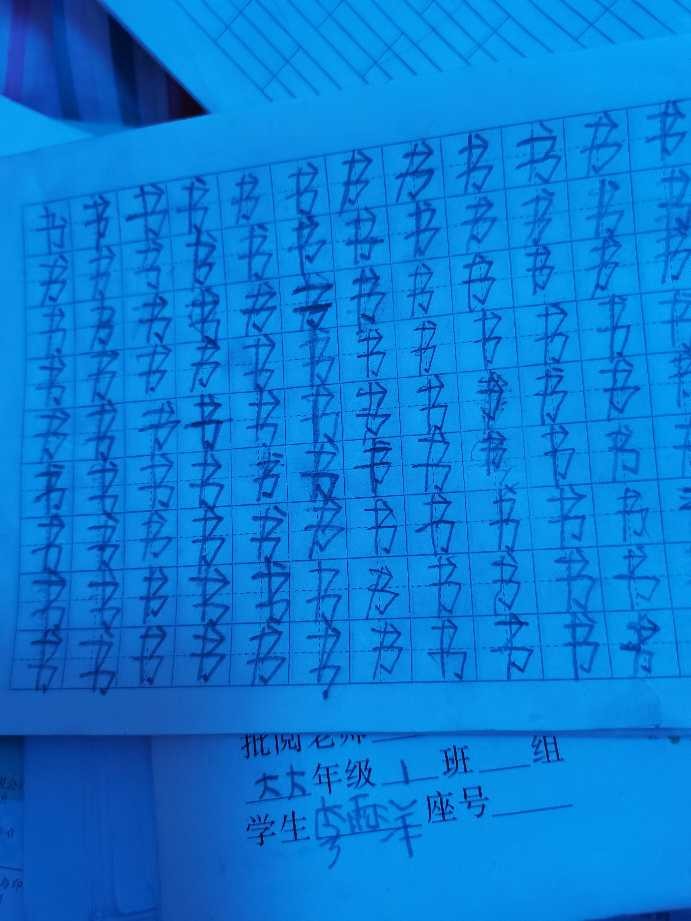 书书书书书书书书书书书书
书书书书书书书书书书书书
书书书书书书书书书书书书
书书书书书书书书书书书书
书书书书书书书书书书书
书书书书书书书书书书书
书书书书书书书书书书书
书书书书书书书书书书书
书书书书书书书书书书书
批阅老师
大大年级1班组
学生李雨羊座号